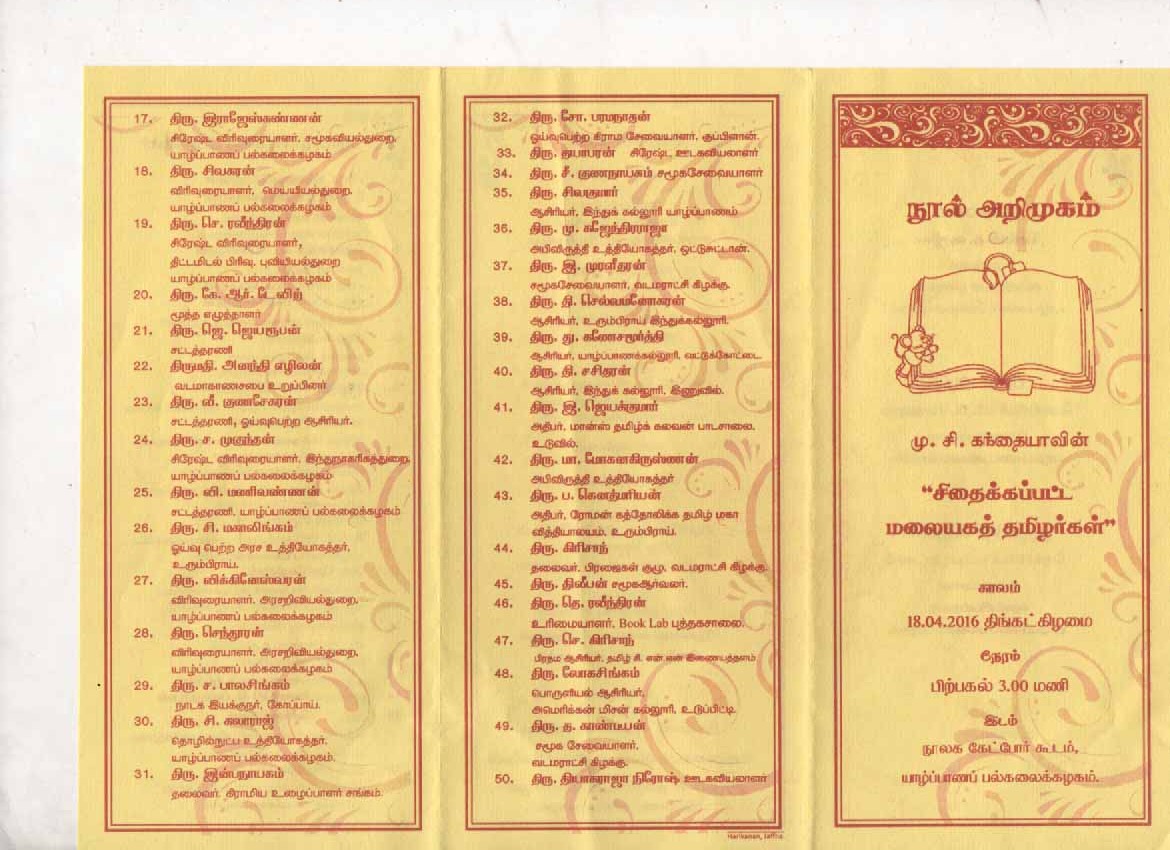 17. திரு. இராஜேஸ்கண்ணன்
சிரேஷ்ட விரிவுரையாளர், சமூகவியல்துறை,
யாழ்ப்பாணப் பல்கலைக்கழகம்
18. திரு. சிவகரன்
விரிவுரையாளர், மெய்யியல்துறை,
யாழ்ப்பாணப் பல்கலைக்கழகம்
19. திரு. செ. ரவீந்திரன்
சிரேஷ்ட விரிவுரையாளர்,
திட்டமிடல் பிரிவு, புவியியல்துறை
யாழ்ப்பாணப் பல்கலைக்கழகம்
20. திரு. கே. ஆர். டேவிற்
மூத்த எழுத்தாளர்
21. திரு. ஜெ. ஜெயரூபன்
சட்டத்தரணி
22. திருமதி. அனந்தி எழிலன்
வடமாகாணசபை உறுப்பினர்
23. திரு. வீ. குணசேகரன்
சட்டத்தரணி, ஓய்வுபெற்ற ஆசிரியர்.
24. திரு. ச. முகுந்தன்
சிரேஷ்ட விரிவுரையாளர், இந்துநாகரிகத்துறை,
யாழ்ப்பாணப் பல்கலைக்கழகம்
25. திரு. வி. மணிவண்ணன்
சட்டத்தரணி, யாழ்ப்பாணப் பல்கலைக்கழகம்
26. திரு. சி. மகாலிங்கம்
ஓய்வு பெற்ற அரச உத்தியோகத்தர்,
உரும்பிராய்.
27. திரு. விக்கினேஸ்வரன்
விரிவுரையாளர், அரசறிவியல்துறை,
யாழ்ப்பாணப் பல்கலைக்கழகம்
28. திரு. செந்தூரன்
விரிவுரையாளர், அரசறிவியல்துறை,
யாழ்ப்பாணப் பல்கலைக்கழகம்
29. திரு. ச. பாலசிங்கம்
நாடக இயக்குநர், கோப்பாய்.
30. திரு. சி. சுலராஜ்
தொழில்நுட்ப உத்தியோகத்தர்,
யாழ்ப்பாணப் பல்கலைக்கழகம்.
31. திரு. இன்பநாயகம்
தலைவர், கிராமிய உழைப்பாளர் சங்கம்.
32. திரு. சோ. பரமநாதன்
ஓய்வுபெற்ற கிராம சேவையாளர், குப்பிளான்.
33. திரு. தயாபரன் சிரேஷ்ட ஊடகவியலாளர்
34. திரு. சீ. குணநாயகம் சமூகசேவையாளர்
35. திரு. சிவகுமார்
ஆசிரியர், இந்துக் கல்லூரி யாழ்ப்பாணம்
36. திரு. மு. கஜேந்திரராஜா
அபிவிருத்தி உத்தியோகத்தர், ஒட்டுசுட்டான்.
37. திரு. இ. முரளிதரன்
சமூகசேவையாளர், வடமராட்சி கிழக்கு.
38. திரு. தி. செல்வமனோகரன்
ஆசிரியர், உரும்பிராய் இந்துக்கல்லூரி.
39. திரு. து. கணேசமூர்த்தி
ஆசிரியர், யாழ்ப்பாணக்கல்லூரி, வட்டுக்கோட்டை
40. திரு. தி. சசிதரன்
ஆசிரியர், இந்துக் கல்லூரி, இணுவில்.
41. திரு. இ. ஜெயக்குமார்
அதிபர், மான்ஸ் தமிழ்க் கலவன் பாடசாலை,
உடுவில்.
42. திரு. மா. மோகனகிருஸ்ணன்
அபிவிருத்தி உத்தியோகத்தர்
43. திரு. ப. கெனத்மரியன்
அதிபர், ரோமன் கத்தோலிக்க தமிழ் மகா
வித்தியாலயம், உரும்பிராய்.
44. திரு. கிரிசாந்
தலைவர், பிரஜைகள் குழு, வடமராட்சி கிழக்கு.
45. திரு. திலீபன் சமூகஆர்வலர்.
46. திரு. தெ. ரவீந்திரன்
உரிமையாளர், Book Lab புத்தகசாலை.
47. திரு. செ. கிரிசாந்
பிரதம ஆசிரியர், தமிழ் சி. என்.என் இணையத்தளம்
48. திரு. லோகசிங்கம்
பொருளியல் ஆசிரியர்,
அமெரிக்கன் மிசன் கல்லூரி, உடுப்பிட்டி.
49. திரு. த. காண்டீபன்
சமூக சேவையாளர்,
வடமராட்சி கிழக்கு.
50. திரு. தியாகராஜா நிரோஷ் ஊடகவியலாளர்
Harikanan, Jaffna
நூல் அறிமுகம்
மு. சி. கந்தையாவின்
“சிதைக்கப்பட்ட
மலையகத் தமிழர்கள்”
காலம்
18.04.2016 திங்கட்கிழமை
நேரம்
பிற்பகல் 3.00 மணி
இடம்
நூலக கேட்போர் கூடம்,
யாழ்ப்பாணப் பல்கலைக்கழகம்.